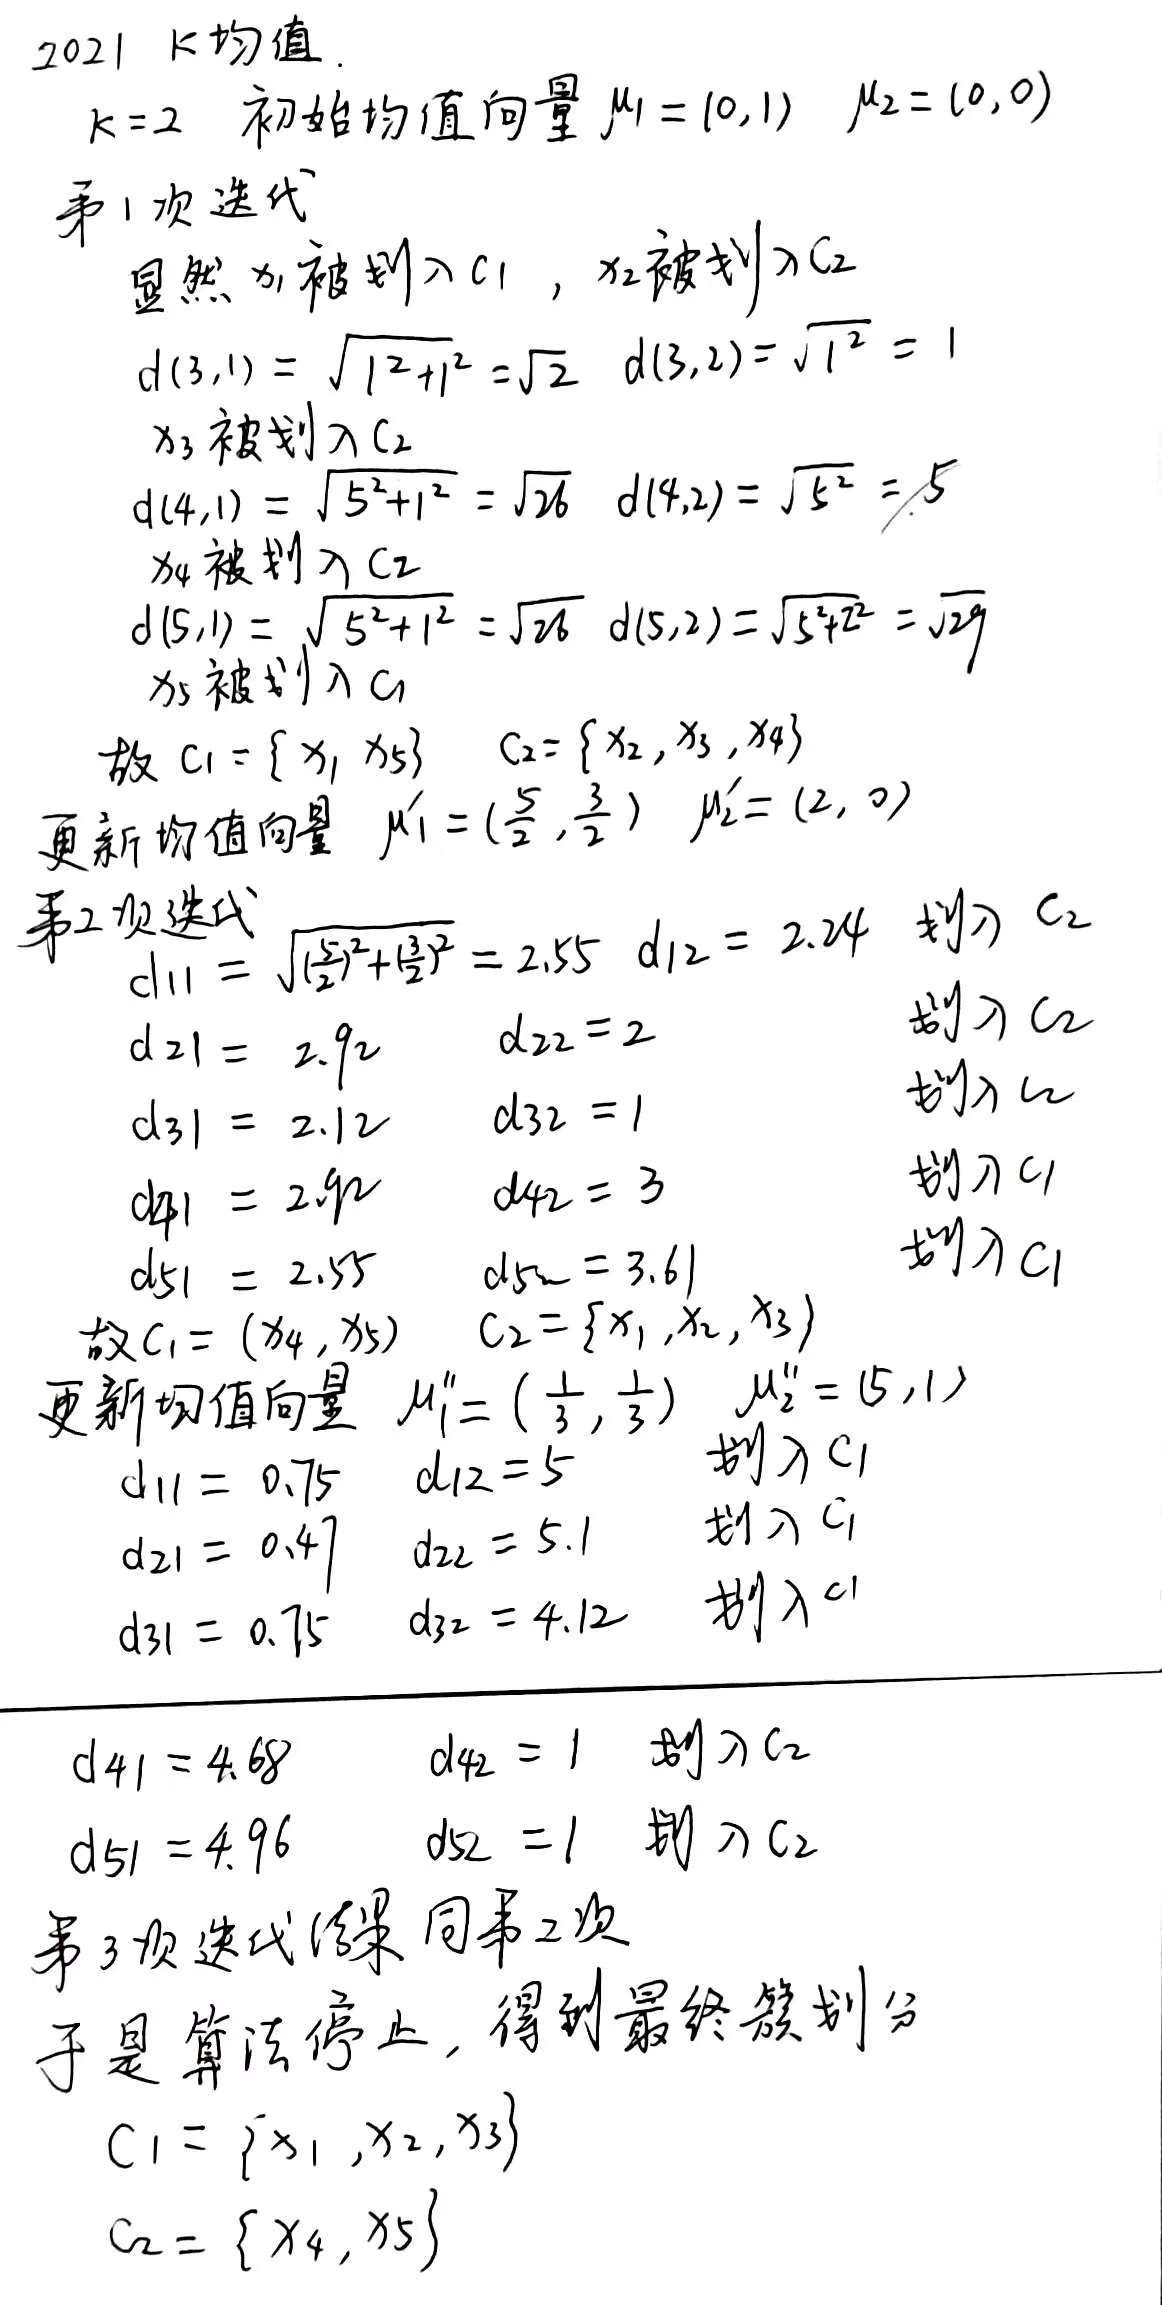 2021 K均值.
K=2 初始均值向量 μ1=(0,1) μ2=(0,0)
第1次迭代
显然 x1被划入C1，x2被划入C2
d(3,1) = √(1²+1²) = √2 d(3,2) = √(1²) = 1
x3被划入C2
d(4,1) = √(5²+1²) = √26 d(4,2) = √(5²) = 5
x4被划入C2
d(5,1) = √(5²+1²) = √26 d(5,2) = √(5²+2²) = √29
x5被划入C1
故 C1={x1 x5} C2={x2,x3,x4}
更新均值向量 μ1'=(5/2,3/2) μ2'=(2,0)
第2次迭代
d11 = √((5/2)²+(3/2)²) = 2.55 d12 = 2.24 划入 C2
d21 = 2.92 d22=2 划入C2
d31 = 2.12 d32=1 划入C2
d41 = 2.92 d42=3 划入C1
d51 = 2.55 d52=3.61 划入C1
故C1=(x4,x5) C2={x1,x2,x3}
更新均值向量 μ1''=(1/3,1/3) μ2''=(5,1)
d11=0.75 d12=5 划入C1
d21=0.47 d22=5.1 划入C1
d31=0.75 d32=4.12 划入C1
d41=4.68 d42=1 划入C2
d51=4.96 d52=1 划入C2
第3次迭代结果同第2次
于是算法停止，得到最终簇划分
C1={x1,x2,x3}
C2={x4,x5}